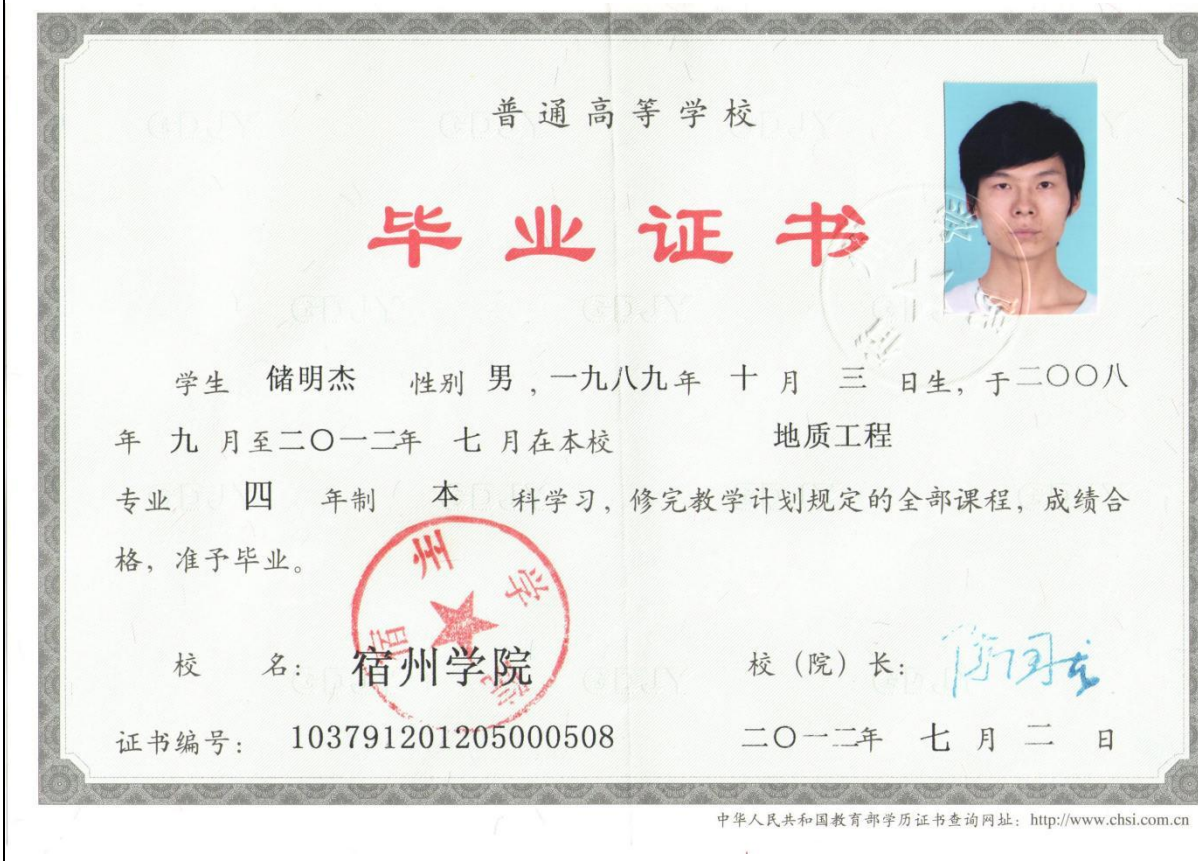 普通高等学校
毕业证书
学生 储明杰 性别 男 ,一九八九年 十 月 三 日生, 于二〇〇八
年 九 月至二〇一二年 七 月在本校 地质工程
专业 四 年制 本 科学习, 修完教学计划规定的全部课程, 成绩合
格, 准予毕业。
宿州学院
校 名: 宿州学院 校 (院) 长:
证书编号: 103791201205000508 二〇一二年 七 月 二 日
中华人民共和国教育部学历证书查询网址: http://www.chsi.com.cn